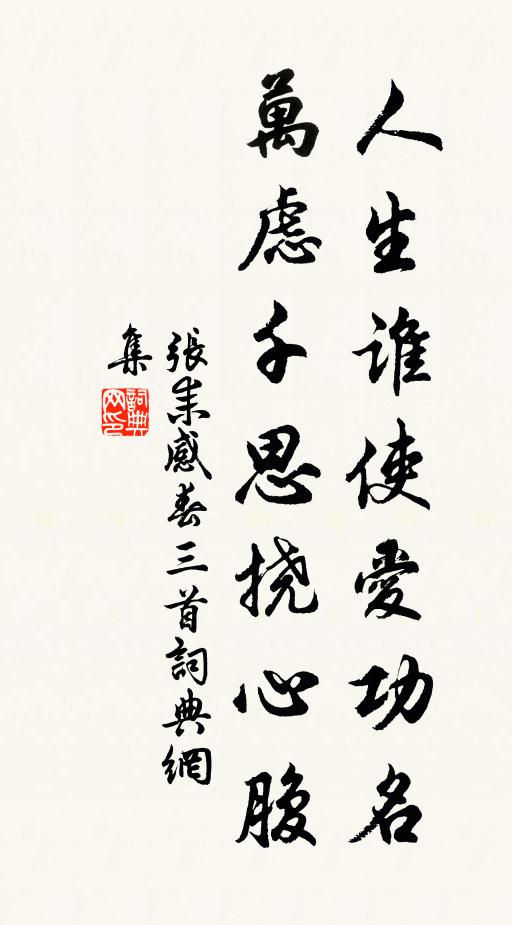 人生谁使愛功名
萬慮千思挠心腹
張耒感春三首詞典網
集
詞典
网印